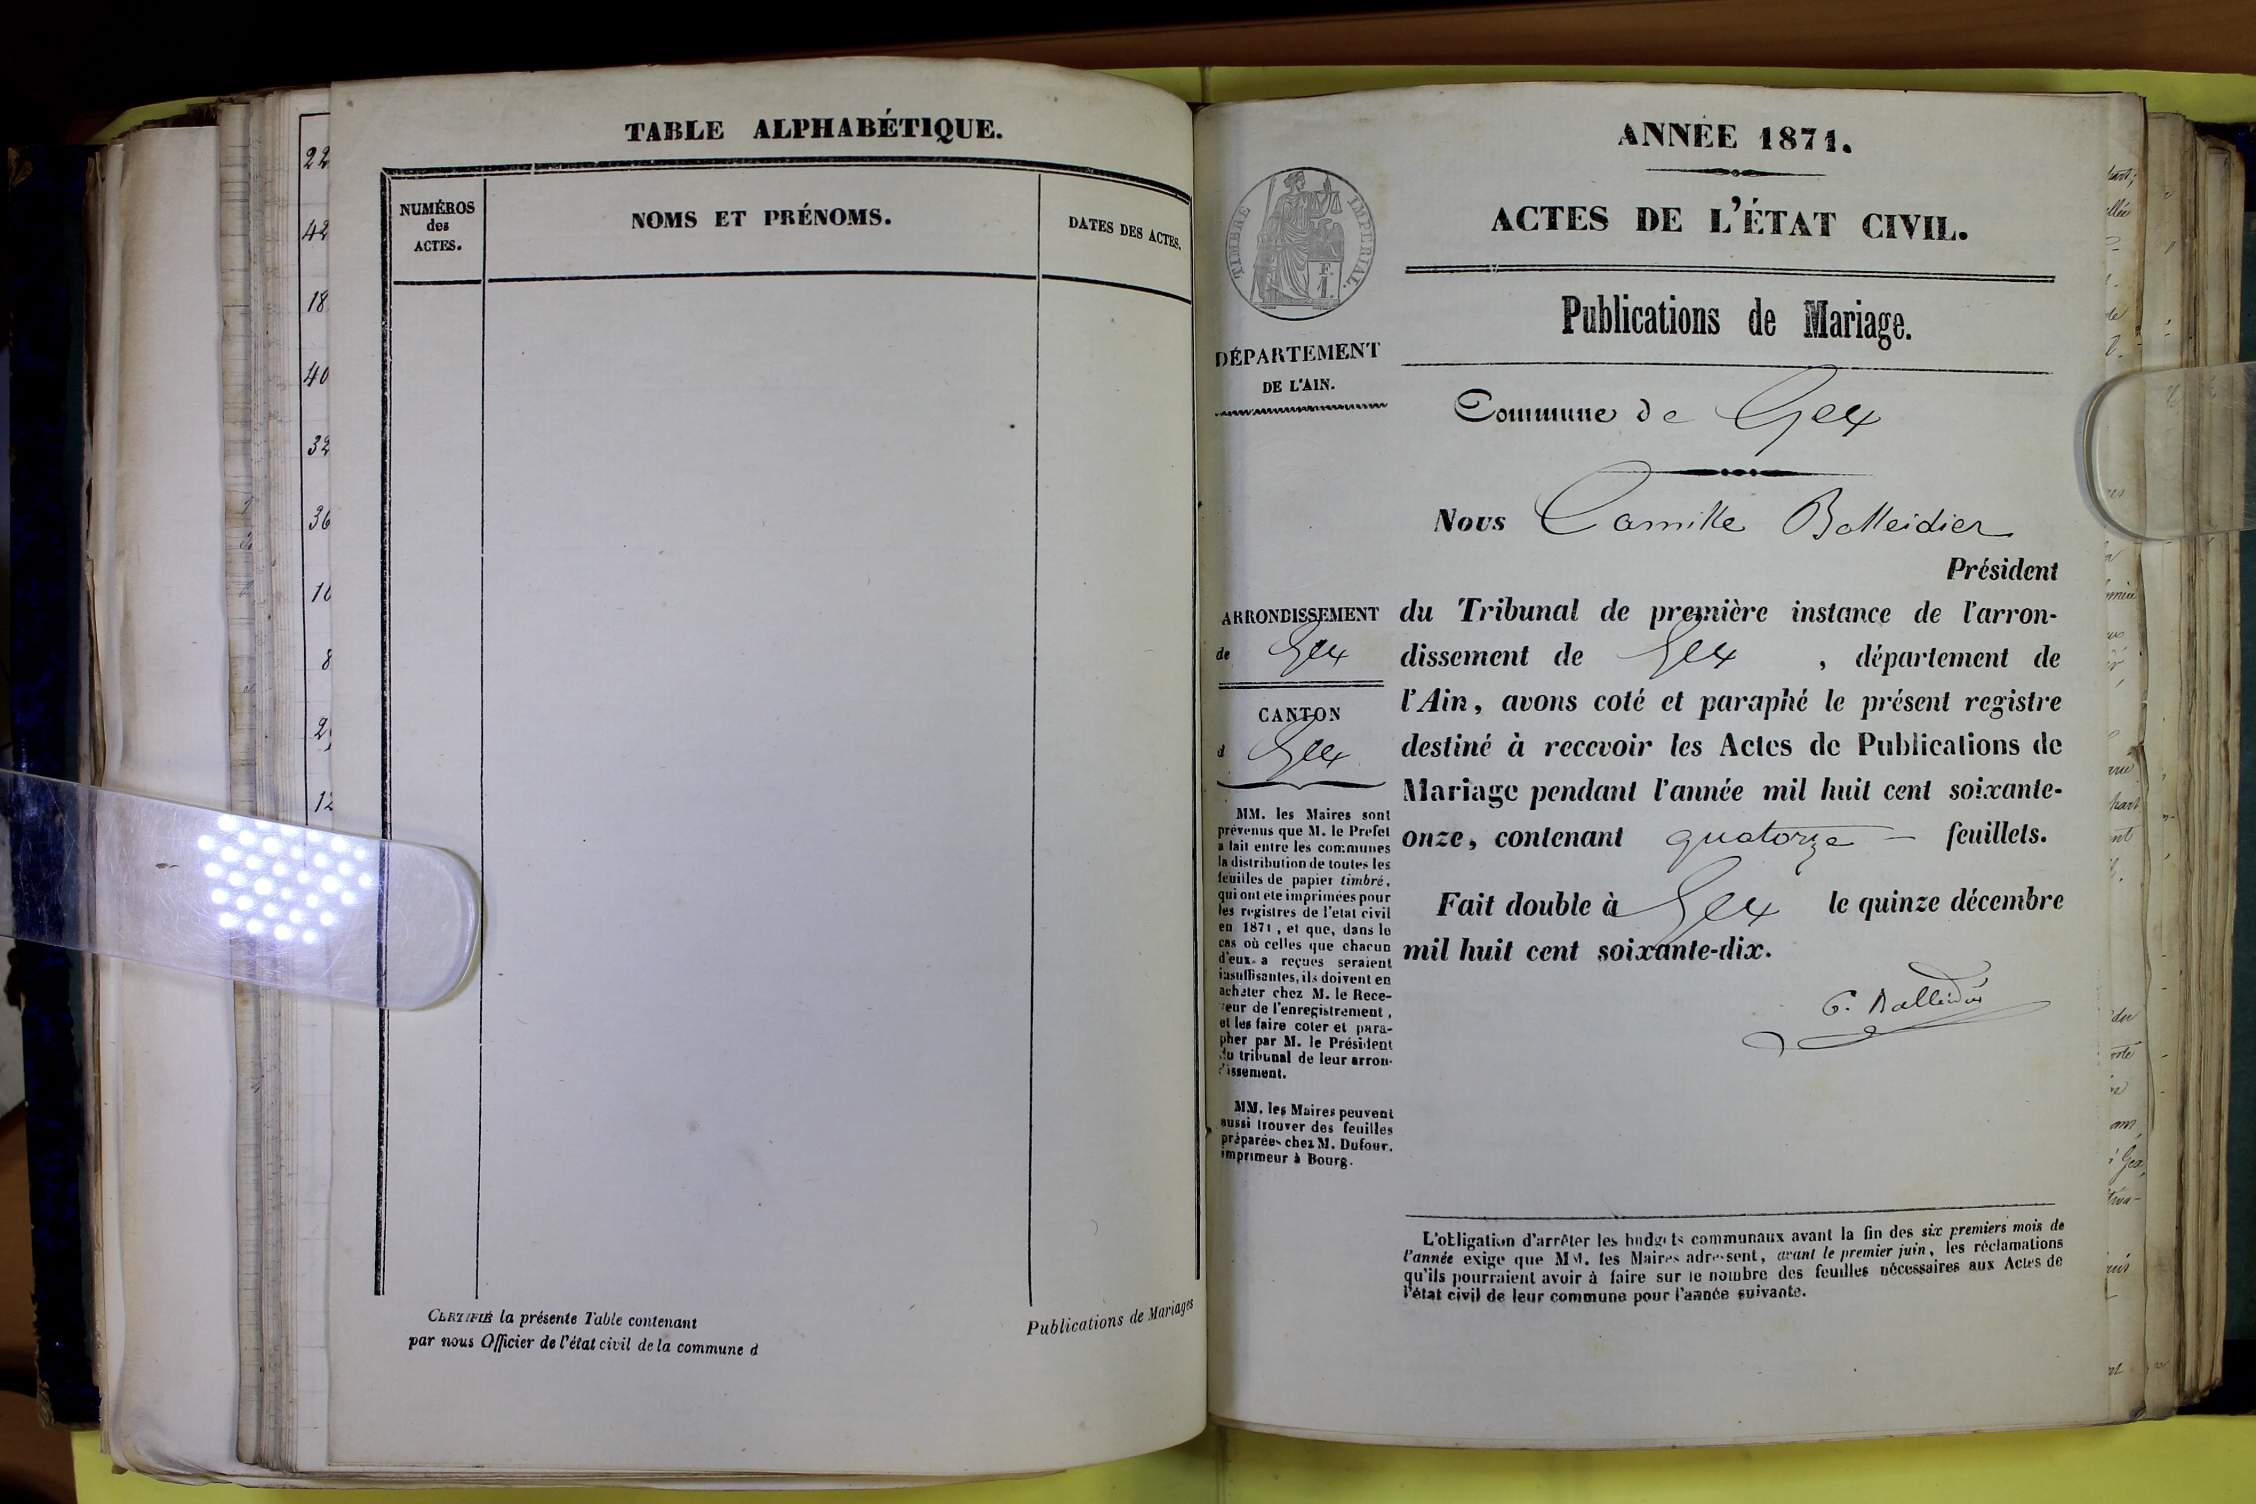 22
42
18
40
32
36
10
8
2
12
TABLE ALPHABÉTIQUE.
NUMÉROS
des
ACTES.
NOMS ET PRÉNOMS.
DATES DES ACTES.
CERTIFIÉ la présente Table contenant
par nous Officier de l'état civil de la commune d
Publications de Mariages
ANNÉE 1871.
ACTES DE L'ÉTAT CIVIL.
TIMBRE IMPERIAL.
F.
1.
Publications de Mariage.
DÉPARTEMENT
DE L'AIN.
Commune de Gex
Nous Camille Balleidier
Président
du Tribunal de première instance de l'arron-
dissement de Gex , département de
l'Ain, avons coté et paraphé le présent registre
destiné à recevoir les Actes de Publications de
Mariage pendant l'année mil huit cent soixante-
onze, contenant quatorze feuillets.
Fait double à Gex le quinze décembre
mil huit cent soixante-dix.
C. Balleidier
ARRONDISSEMENT
de Gex
CANTON
d Gex
MM. les Maires sont
prévenus que M. le Préfet
a fait entre les communes
la distribution de toutes les
feuilles de papier timbré,
qui ont été imprimées pour
les registres de l'état civil
en 1871, et que, dans le
cas où celles que chacun
d'eux a reçues seraient
insuffisantes, ils doivent en
acheter chez M. le Rece-
veur de l'enregistrement,
et les faire coter et para-
pher par M. le Président
du tribunal de leur arron-
dissement.
MM. les Maires peuvent
aussi trouver des feuilles
préparées chez M. Dufour,
imprimeur à Bourg.
L'obligation d'arrêter les budgets communaux avant la fin des six premiers mois de
l'année exige que MM. les Maires adressent, avant le premier juin, les réclamations
qu'ils pourraient avoir à faire sur le nombre des feuilles nécessaires aux Actes de
l'état civil de leur commune pour l'année suivante.